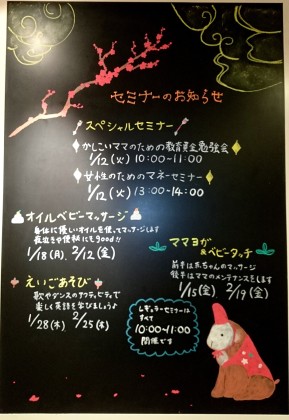 セミナーのお知らせ
スペシャルセミナー
かしこいママのための教育資金勉強会
1/12(火) 10:00~11:00
女性のためのマネーセミナー
1/12(火) 13:00~14:00
オイルベビーマッサージ
身体に優しいオイルを使ってマッサージします
夜泣きや便秘にもgood!!
1/18(月)、2/12(金)
ママヨガ
&ベビータッチ
前半は赤ちゃんのマッサージ
後半はママのメンテナンスをします
1/15(金)、2/19(金)
えいごあそび
歌やダンスのアクティビティで
楽しく英語を学びましょう♪
1/28(木)、2/25(木)
レギュラーセミナーは
すべて
10:00~11:00
開催です